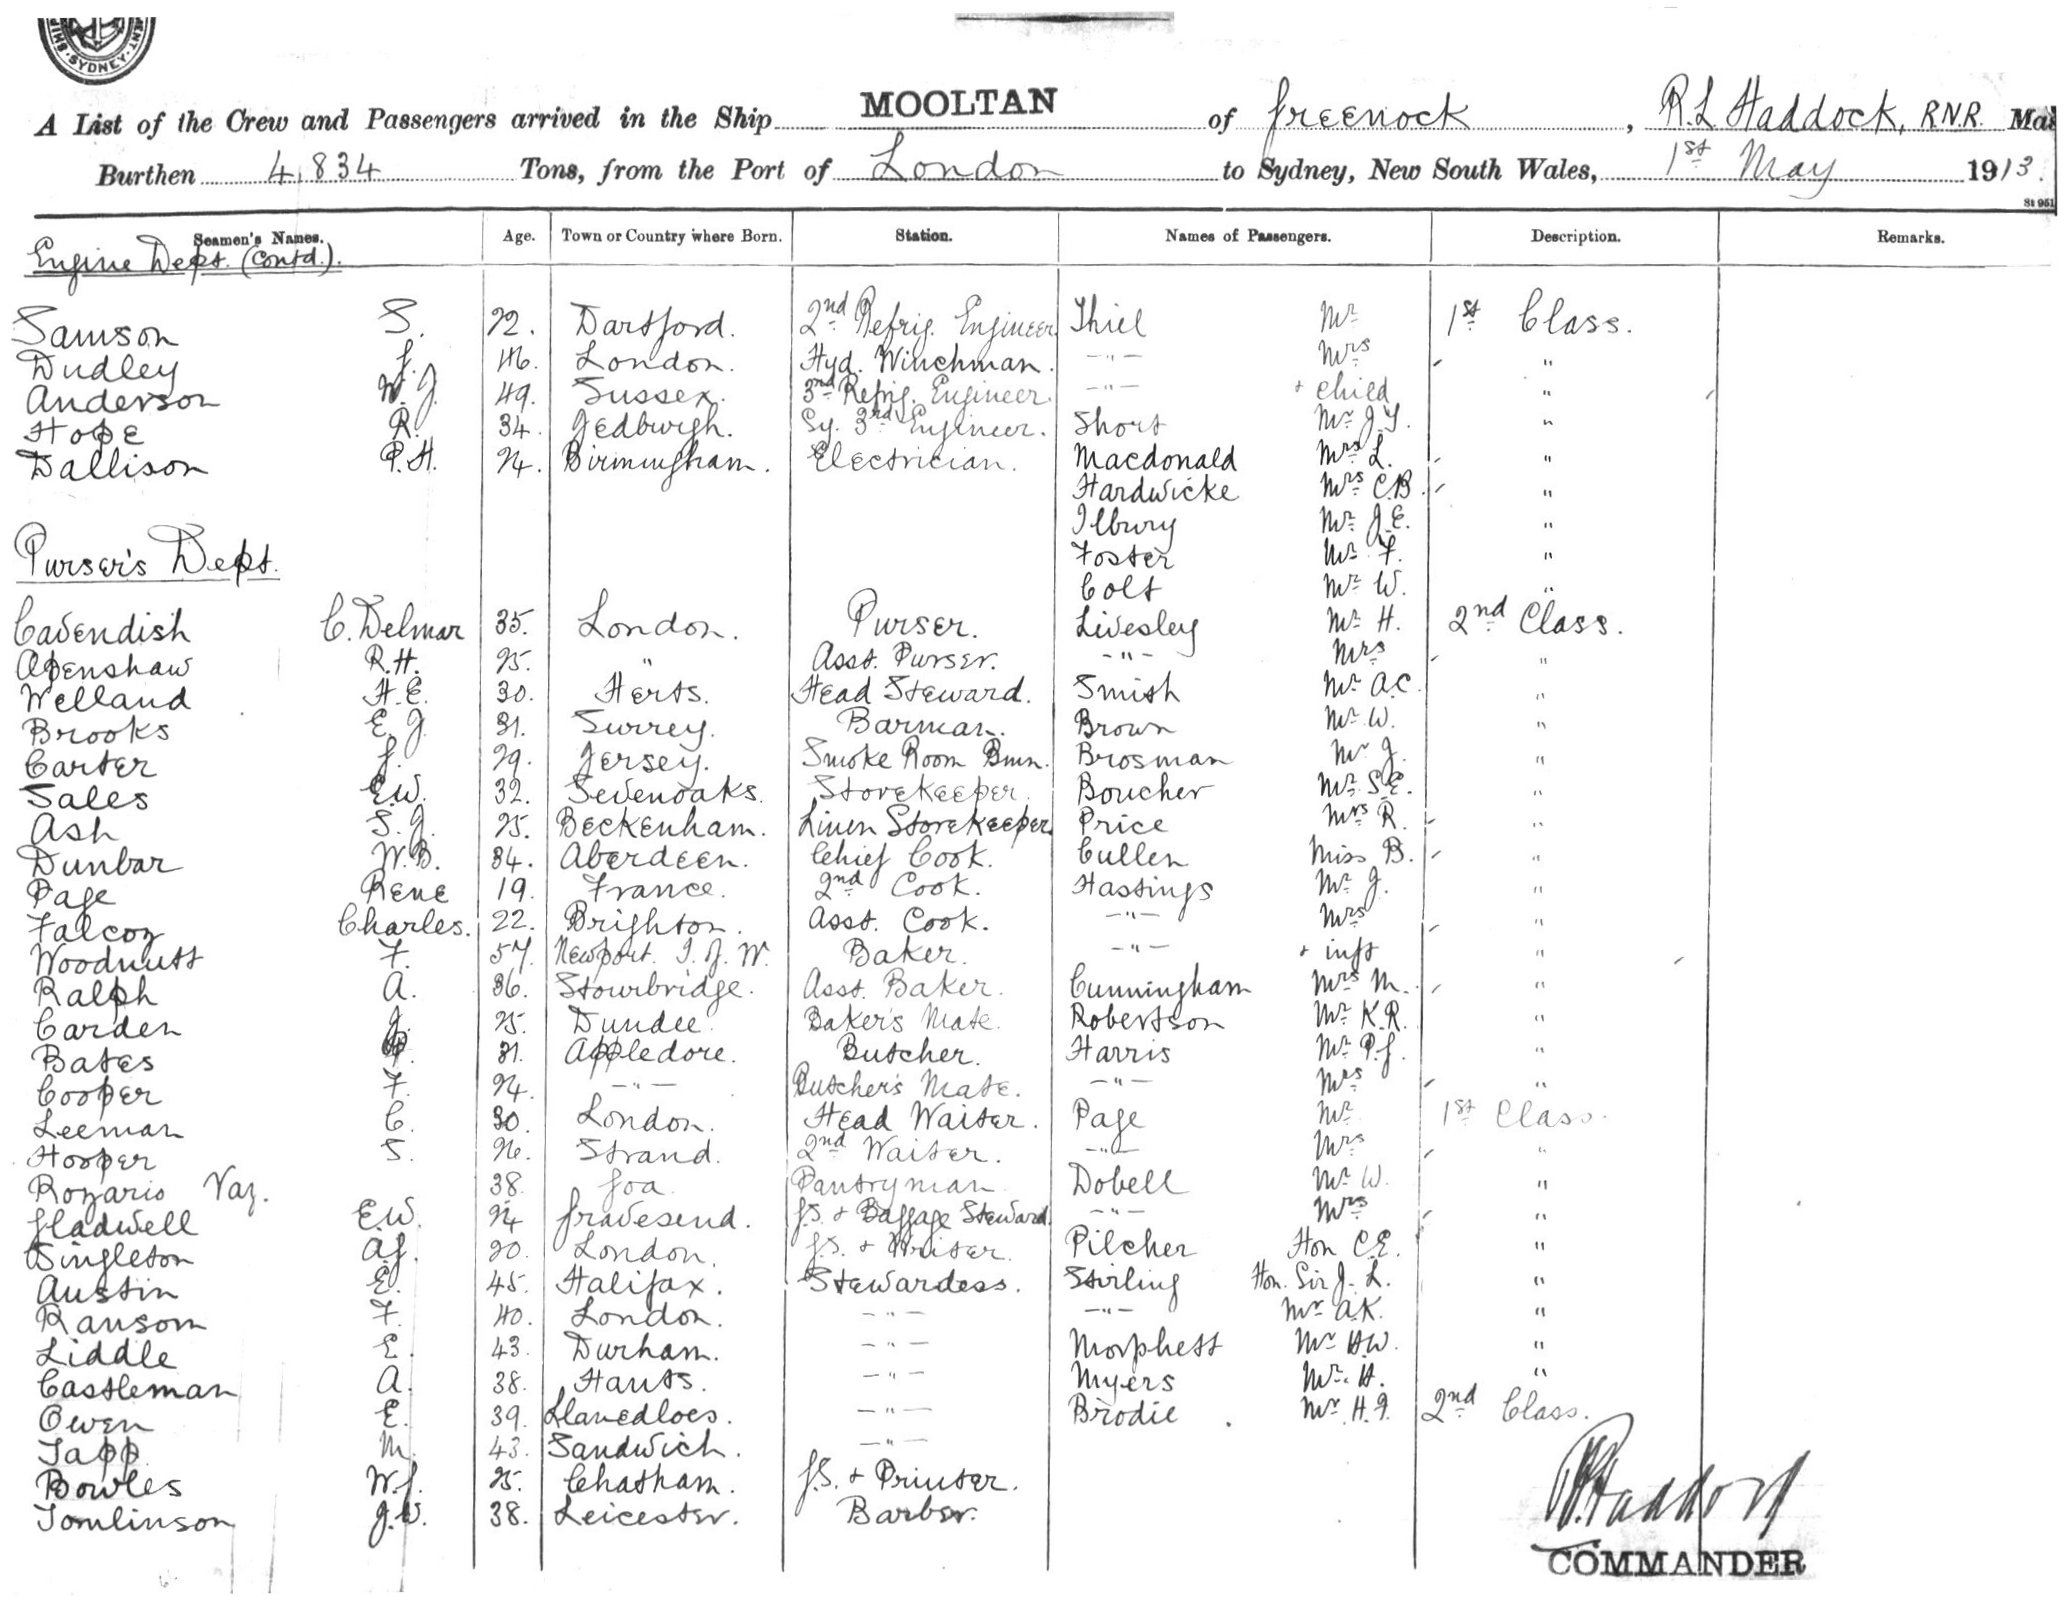 SYDNEY
A List of the Crew and Passengers arrived in the Ship MOOLTAN of Greenock, R.L Haddock, R.N.R. Mas
Burthen 4,834 Tons, from the Port of London to Sydney, New South Wales, 1st May 1913.
St 951
Seamen's Names. Age. Town or Country where Born. Station. Names of Passengers. Description. Remarks.
Engine Dept. (Contd.).
Samson S. 22. Dartford. 2nd Refrig. Engineer Thiel Mr 1st Class.
Dudley G. 46. London. Hyd. Winchman. -"- Mrs "
Anderson W.J. 49. Sussex. 3rd Refrig. Engineer. -"- + child "
Hope R. 34. Jedburgh. Sy. 3rd Engineer. Short Mr J.Y. "
Dallison P.H. 24. Birmingham. Electrician. Macdonald Mrs L. "
Hardwicke Mrs C.B. "
Ilbury Mr J.E. "
Purser's Dept. Foster Mr F. "
Colt Mr W. "
Cavendish C. Delmar 35. London. Purser. Livesley Mr H. 2nd Class.
Openshaw R.H. 25. " Asst. Purser. -"- Mrs "
Welland H.E. 30. Herts. Head Steward. Smith Mr A.C. "
Brooks E.J. 31. Surrey. Barman. Brown Mr W. "
Carter G. 29. Jersey. Smoke Room Bmn. Brosman Mr J. "
Sales E.W. 32. Sevenoaks. Storekeeper. Boucher Mr S.E. "
Ash S.J. 25. Beckenham. Linen Storekeeper. Price Mrs R. "
Dunbar W.B. 34. Aberdeen. Chief Cook. Cullen Miss B. "
Page Rene 19. France. 2nd Cook. Hastings Mr J. "
Falcoz Charles. 22. Brighton. Asst. Cook. -"- Mrs "
Woodnutt F. 57. Newport. I. of W. Baker. -"- + inft "
Ralph A. 36. Stourbridge. Asst. Baker. Cunningham Mrs M. "
Carden J. 25. Dundee. Baker's Mate. Robertson Mr K.R. "
Bates 31. Appledore. Butcher. Harris Mr P.G. "
Cooper F. 24. -"- Butcher's Mate. -"- Mrs "
Leeman C. 30. London. Head Waiter. Page Mr 1st Class.
Hooper S. 26. Strand. 2nd Waiter. -"- Mrs "
Rozario Vaz. 38. Goa. Pantryman. Dobell Mr W. "
Gladwell E.W. 24 Gravesend. G.S. + Baggage Steward. -"- Mrs "
Singleton A.G. 20. London. G.S. + Writer. Pilcher Hon C.E. "
Austin E. 45. Halifax. Stewardess. Stirling Hon. Sir J. L. "
Ransom F. 40. London. -"- -"- Mr A.K. "
Liddle E. 43. Durham. -"- Morphett Mr H.W. "
Castleman A. 38. Hants. -"- Myers Mr. H. "
Owen E. 39. Llanedloes. -"- Brodie Mr H.F. 2nd Class.
Tapp M. 43. Sandwich. -"-
Bowles W.G. 25. Chatham. G.S. + Printer.
Tomlinson J.W. 38. Leicester. Barber.
R.L.Haddock
COMMANDER